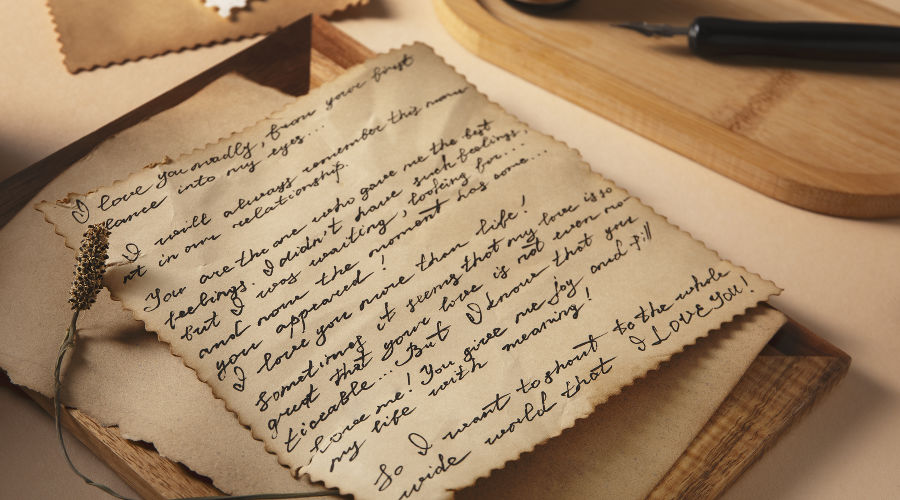 I love you madly, from your first
glance into my eyes...
I will always remember this mom
nt in our relationship.
You are the one who gave me the best
feelings. I didn't have such feelings,
but I was waiting, looking for...
and now the moment has come...
you appeared!
I love you more than life!
Sometimes it seems that my love is so
great that your love is not even no
ticeable... But I know that you
love me! You give me joy and fill
my life with meaning!
So I want to shout to the whole
wide world that I LOVE YOU!